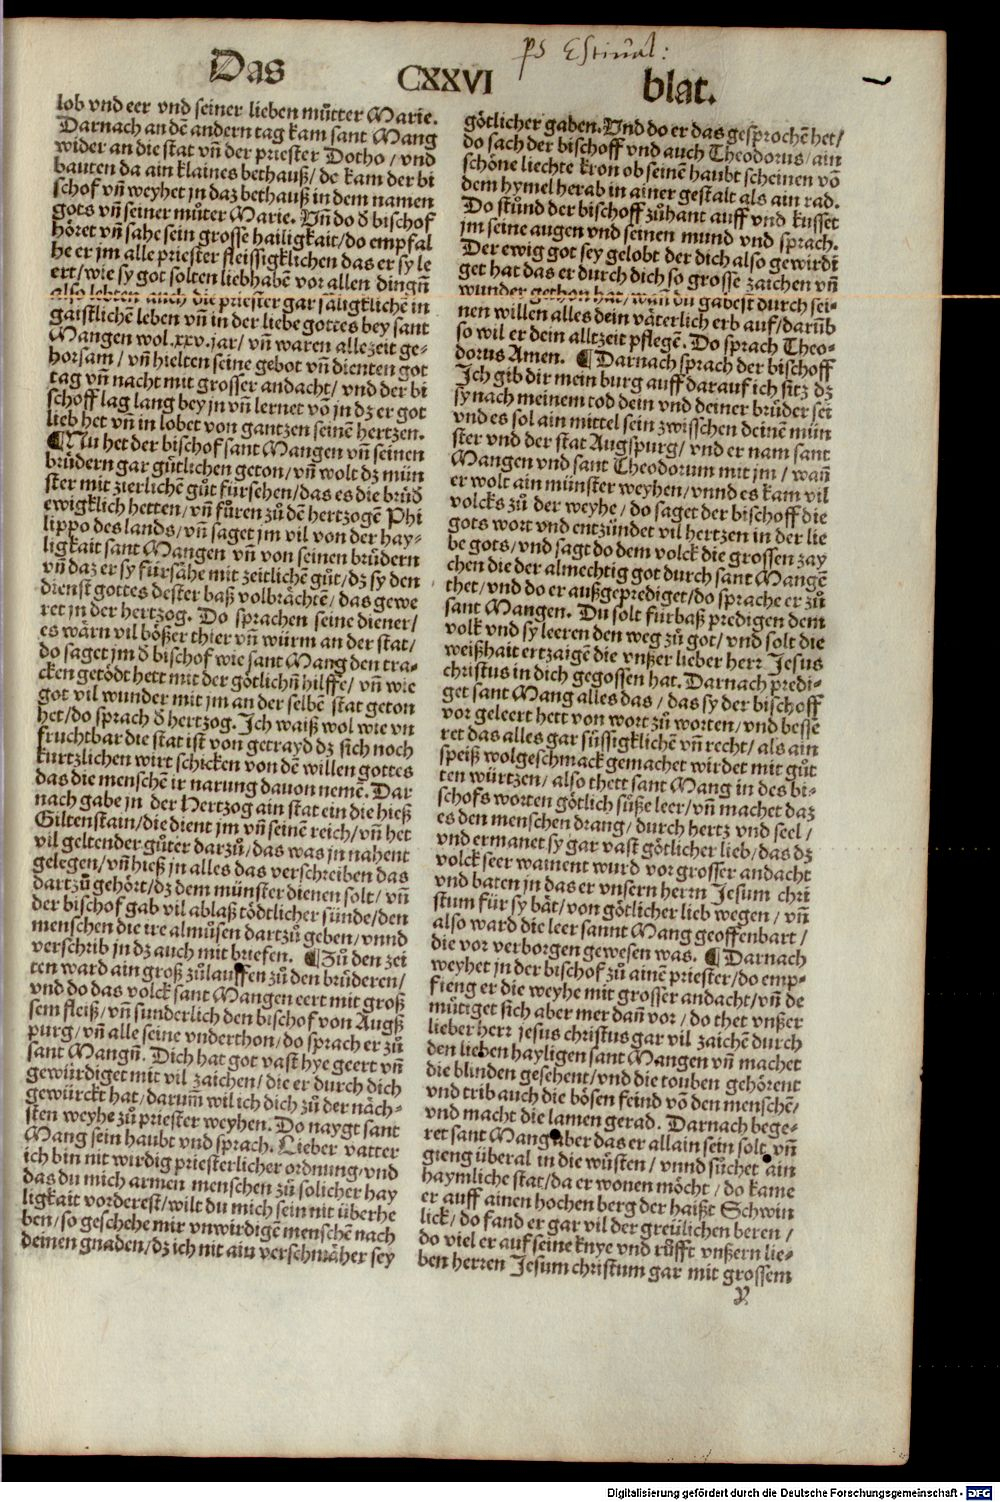 ps Estiual:
Das CXXVI blat.
lob vnd eer vnd seiner lieben můtter Marie.
Darnach an dē andern tag kam sant Mang
wider an die stat vñ der priester Dotho / vnd
bauten da ain klaines bethauß / do kam der bi
schof vñ weyhet jn daz bethauß in dem namen
gots vñ seiner můter Marie. Vñ do ð bischof
höret vñ sahe sein grosse hailigkait / do empfal
he er jm alle priester fleissigklichen das er sy le
ert / wie sy got solten liebhabē vor allen dingñ
also lebten auch die priester gar säligklichē in
gaistlichē leben vñ in der liebe gottes bey sant
Mangen wol .xxv. jar / vñ waren alle zeit ge⸗
horsam / vñ hielten seine gebot vñ dienten got
tag vñ nacht mit grosser andacht / vnd der bi
schoff lag lang bey jn vñ lernet võ jn dz er got
lieb het vñ in lobet von gantzen seinē hertzen.
¶Nu het der bischof sant Mangen vñ seinen
brüdern gar gůtlichen geton / vñ wolt dz mün
ster mit zierlichē gůt fürsehen / das es die brüð
ewigklich hetten / vñ fůren zů dē hertzogē Phi
lippo des lands / vñ saget jm vil von der hay⸗
ligkait sant Mangen vñ von seinen brüdern
vñ daz er sy fürsähe mit zeitlichē gůt / dz sy den
dienst gottes dester baß volbrächtē / das gewe
ret jn der hertzog. Do sprachen seine diener /
es wärn vil bößer thier vñ würm an der stat /
do saget jm ð bischof wie sant Mang den tra⸗
cken getödt hett mit der götlichñ hilffe / vñ wie
got vil wunder mit jm an der selbē stat geton
het / do sprach ð hertzog. Ich waiß wol wie vn
fruchtbar die stat ist von getrayd dz sich noch
kurtzlichen wirt schicken von dē willen gottes
das die menschē ir narung dauon nemē. Dar
nach gabe jn der Hertzog ain stat ein die hieß
Giltenstain / die dient jm vñ seinē reich / vñ het
vil geltender gůter darzů / das was jn nahent
gelegen / vñ hieß jn alles das verschreiben das
dartzů gehört / dz dem münster dienen solt / vñ
der bischof gab vil ablaß tödtlicher sünde / den
menschen die ire almůsen dartzů geben / vnnd
verschrib jn dz auch mit briefen. ¶Zů den zei
ten ward ain groß zůlauffen zů den brüderen /
vnd do das volck sant Mangen eert mit groß
sem fleiß / vñ sunderlich den bischof von Augß
purg / vñ alle seine vnderthon / do sprach er zů
sant Mangñ. Dich hat got vast hye geert vñ
gewürdiget mit vil zaichen / die er durch dich
gewürckt hat / darum̄ wil ich dich zů der näch⸗
sten weyhe zů priester weyhen. Do naygt sant
Mang sein haubt vnd sprach. Lieber vatter
ich bin nit wirdig priesterlicher ordnung / vnd
das du mich armen menschen zů solicher hay
ligkait vorderest / wilt du mich sein nit überhe
ben / so geschehe mir vnwirdigē menschē nach
deinen gnaden / dz ich nit ain verschmäher sey
götlicher gaben. Vnd do er das gesprochē het /
do sach der bischoff vnd auch Theodorus / ain
schöne liechte kron ob seinē haubt scheinen võ
dem hymel herab in ainer gestalt als ain rad.
Do stůnd der bischoff zůhant auff vnd kusset
jm seine augen vnd seinen mund vnd sprach.
Der ewig got sey gelobt der dich also gewirdi
get hat das er durch dich so grosse zaichen vñ
wunder gethon hat / wañ du gabest durch sei⸗
nen willen alles dein väterlich erb auf / darūb
so wil er dein alltzeit pflegē. Do sprach Theo⸗
dorus Amen. ¶Darnach sprach der bischoff
Ich gib dir mein burg auff darauf ich sitz dz
sy nach meinem tod dein vnd deiner brüder sei
vnd es sol ain mittel sein zwisschen deinē mün
ster vnd der stat Augspurg / vnd er nam sant
Mangen vnd sant Theodorum mit jm / wañ
er wolt ain münster weyhen / vnnd es kam vil
volcks zů der weyhe / do saget der bischoff die
gots wort vnd entzündet vil hertzen in der lie
be gots / vnd sagt do dem volck die grossen zay
chen die der almechtig got durch sant Mangē
thet / vnd do er außgeprediget / do sprache er zů
sant Mangen. Du solt fürbaß predigen dem
volk vnd sy leeren den weg zů got / vnd solt die
weißhait ertzaigē die vnßer lieber herr Jesus
christus in dich gegossen hat. Darnach predi⸗
get sant Mang alles das / das sy der bischoff
vor geleert hett von wort zů worten / vnd bessē
ret das alles gar süssigklichē vñ recht / als ain
speiß wolgeschmack gemachet wirdet mit gůt
ten würtzen / also thett sant Mang in des bi⸗
schofs worten götlich süße leer / vñ machet daz
es den menschen drang / durch hertz vnd seel /
vnd ermanet sy gar vast götlicher lieb / das dz
volck seer wainent wurd vor grosser andacht
vnd baten jn das er vnsern herrn Jesum chri
stum für sy bät / von götlicher lieb wegen / vñ
also ward die leer sannt Mang geoffenbart /
die vor verborgen gewesen was. ¶Darnach
weyhet jn der bischof zů ainē priester / do emp⸗
fieng er die weyhe mit grosser andacht / vñ de
mütiget sich aber mer dañ vor / do thet vnßer
lieber herr jesus christus gar vil zaichē durch
den lieben hayligen sant Mangen vñ machet
die blinden gesehent / vnd die touben gehörent
vnd trib auch die bösen feind võ den menschē /
vnd macht die lamen gerad. Darnach bege⸗
ret sant Mang aber das er allain sein solt vñ
gieng überal in die wůsten / vnnd sůchet ain
haymliche stat / da er wonen möcht / do kame
er auff ainen hochen berg der haißt Schwin
lick / do fand er gar vil der greülichen beren /
do viel er auf seine knye vnd růfft vnßern lie⸗
ben herren Jesum christum gar mit grossem
y
Digitalisierung gefördert durch die Deutsche Forschungsgemeinschaft - DFG